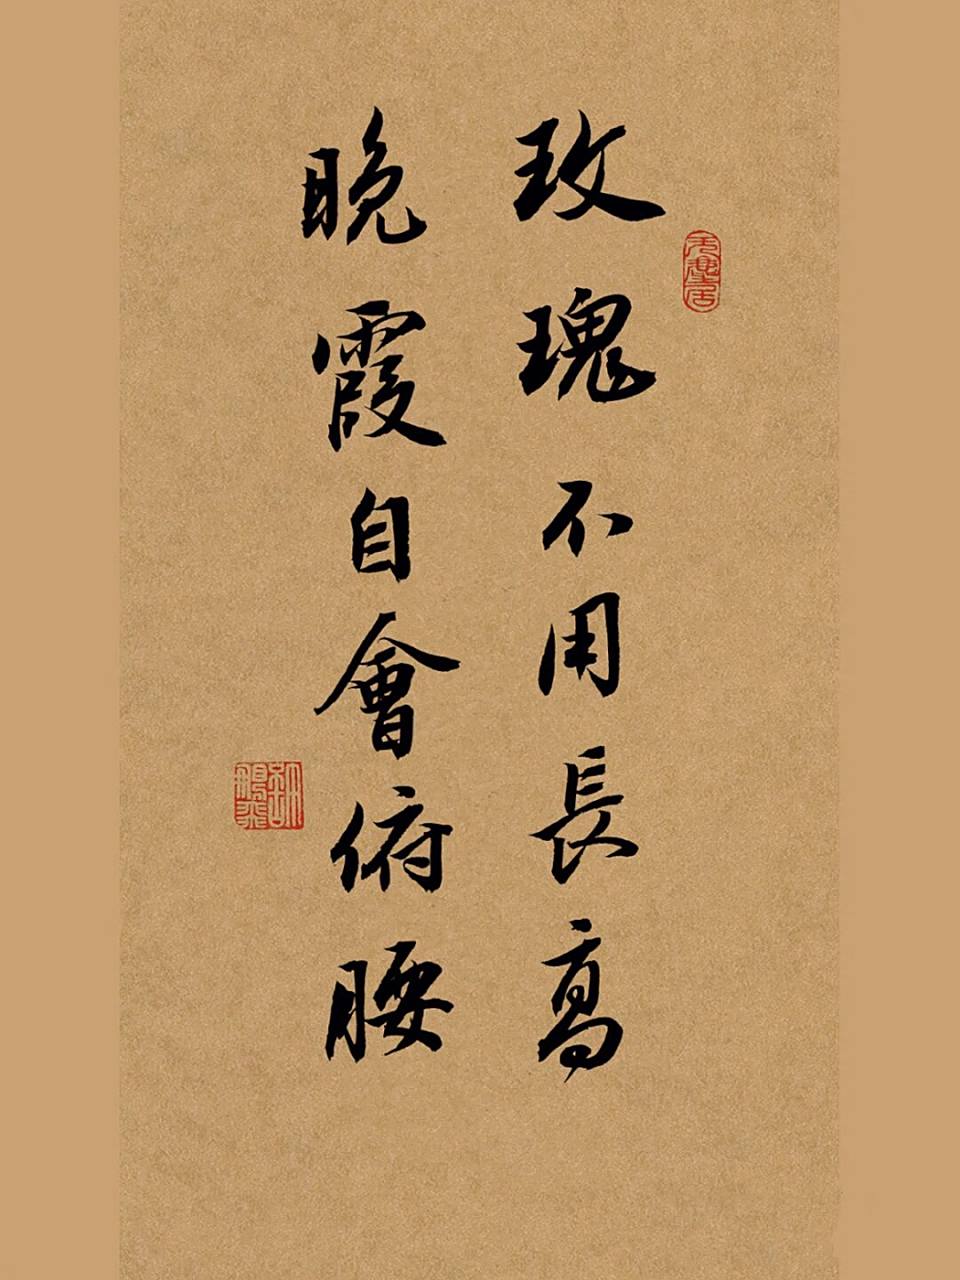 玫瑰不用長高
晚霞自會俯腰